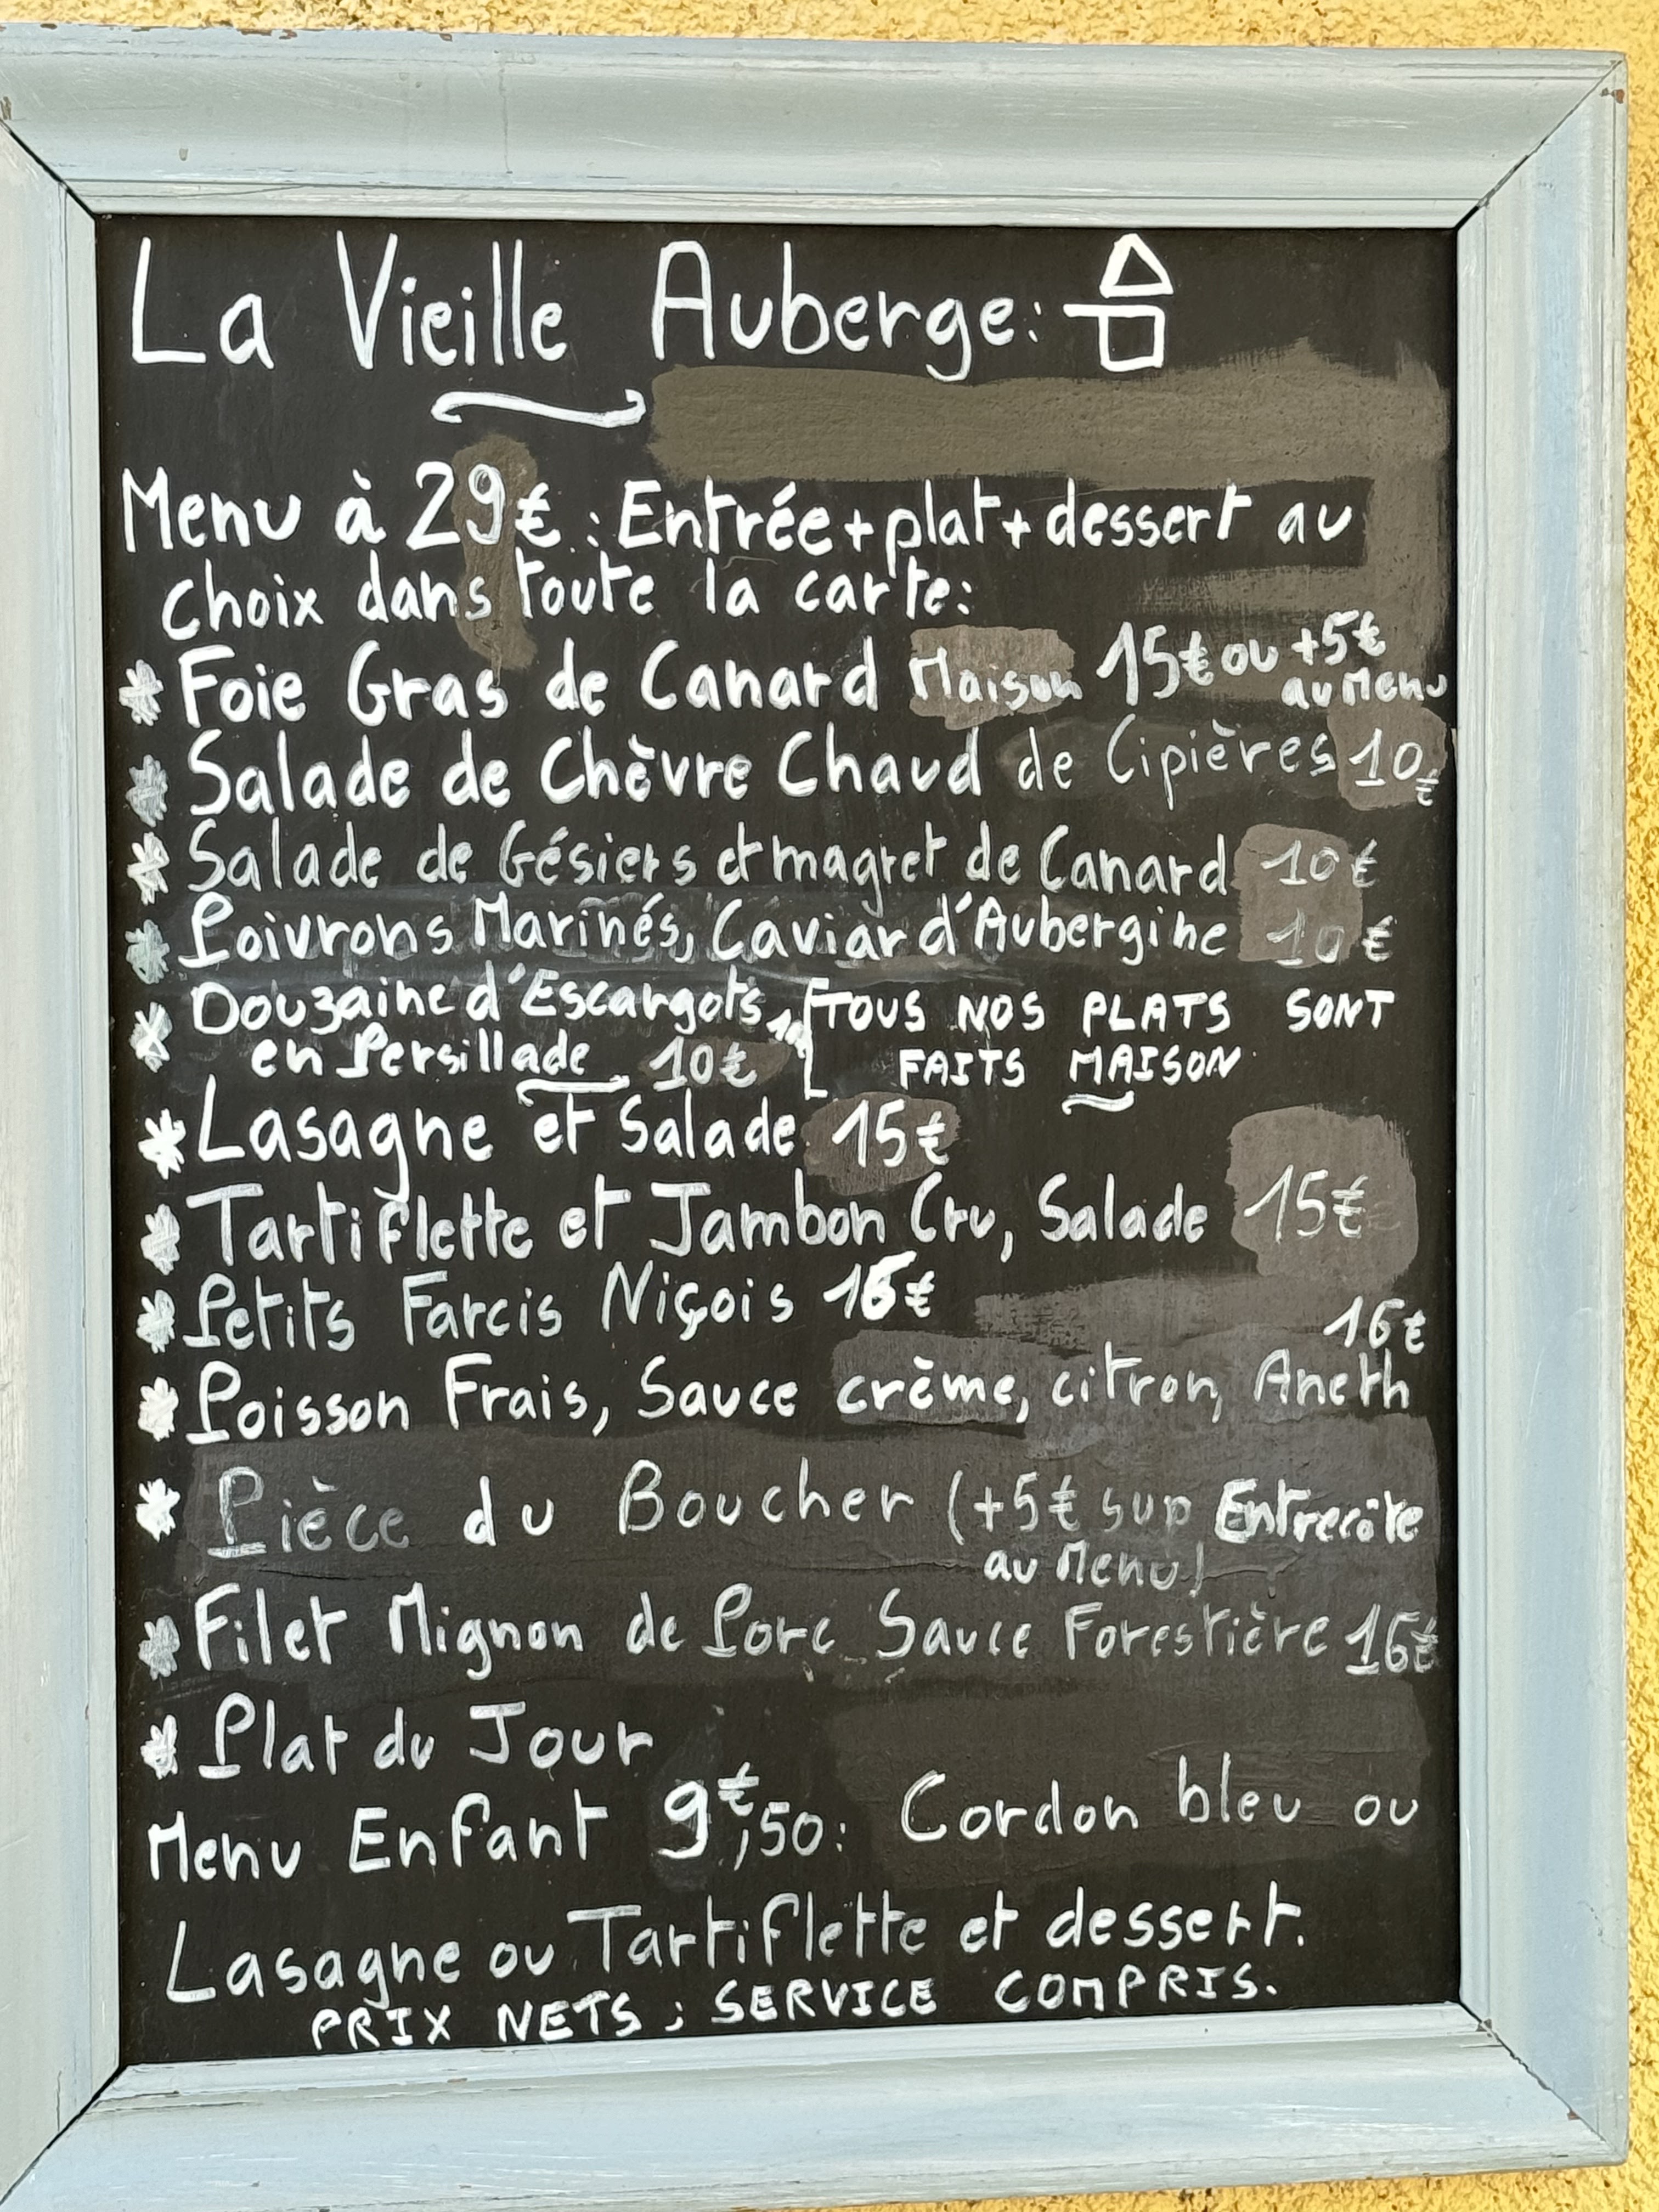 La Vieille Auberge:
Menu à 29€ : Entrée + plat + dessert au
choix dans toute la carte:
* Foie Gras de Canard Maison 15€ ou +5€
au Menu
* Salade de Chèvre Chaud de Cipières 10€
* Salade de Gésiers et magret de Canard 10€
* Poivrons Marinés, Caviar d'Aubergine 10€
* Douzaine d'Escargots [TOUS NOS PLATS SONT
en Persillade 10€ FAITS MAISON
* Lasagne et Salade 15€
* Tartiflette et Jambon Cru, Salade 15€
* Petits Farcis Niçois 16€
16€
* Poisson Frais, Sauce crème, citron, Aneth
* Pièce du Boucher (+5€ sup Entrecôte
au Menu)
* Filet Mignon de Porc Sauce Forestière 16€
* Plat du Jour
Menu Enfant 9€,50: Cordon bleu ou
Lasagne ou Tartiflette et dessert.
PRIX NETS ; SERVICE COMPRIS.